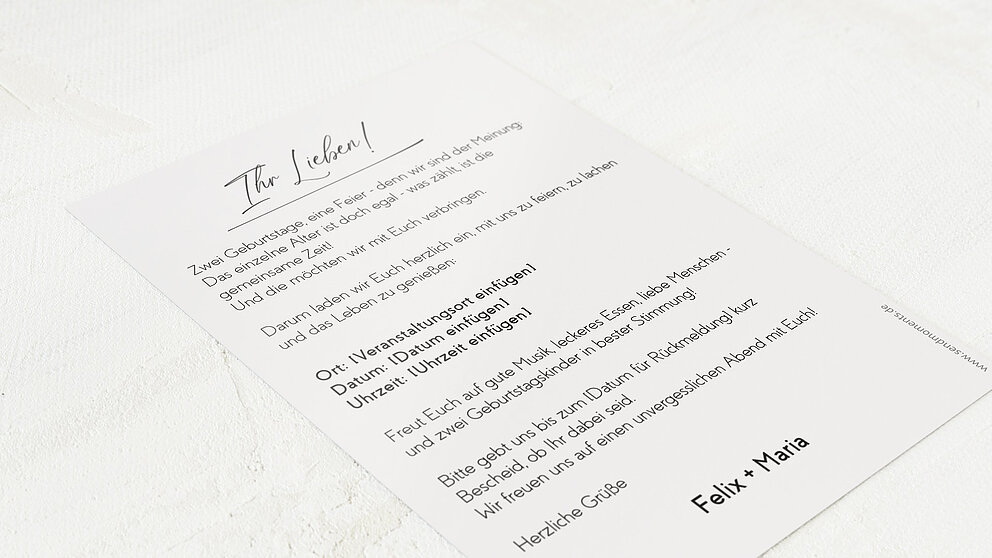 Ihr Lieben!
Zwei Geburtstage, eine Feier - denn wir sind der Meinung:
Das einzelne Alter ist doch egal - was zählt, ist die
gemeinsame Zeit!
Und die möchten wir mit Euch verbringen.
Darum laden wir Euch herzlich ein, mit uns zu feiern, zu lachen
und das Leben zu genießen:
Ort: [Veranstaltungsort einfügen]
Datum: [Datum einfügen]
Uhrzeit: [Uhrzeit einfügen]
Freut Euch auf gute Musik, leckeres Essen, liebe Menschen -
und zwei Geburtstagskinder in bester Stimmung!
Bitte gebt uns bis zum [Datum für Rückmeldung] kurz
Bescheid, ob Ihr dabei seid.
Wir freuen uns auf einen unvergesslichen Abend mit Euch!
Herzliche Grüße
Felix + Maria
www.sendmoments.de